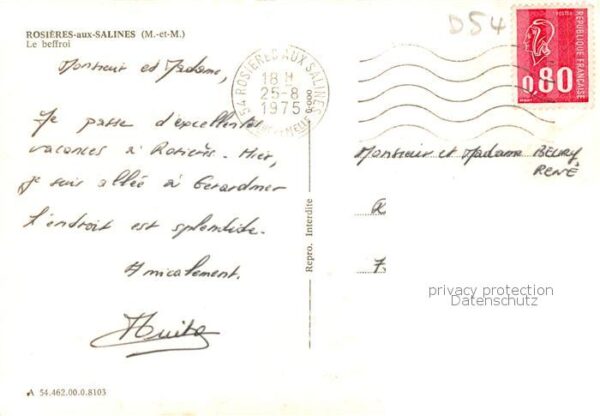 ROSIÈRES-aux-SALINES (M.-et-M.)
Le beffroi
D54
POSTES
0,80
RÉPUBLIQUE FRANÇAISE
54 ROSIERES AUX SALINES
18 H
25-8
1975
Monsieur et Madame,
Je passe d'excellentes
vacances à Rosières. Hier,
je suis allée à Gerardmer
L'endroit est splendide.
Amicalement.
Monsieur et Madame BEURY
RENÉ
Repro. Interdite
privacy protection
Datenschutz
A 54.462.00.0.8103